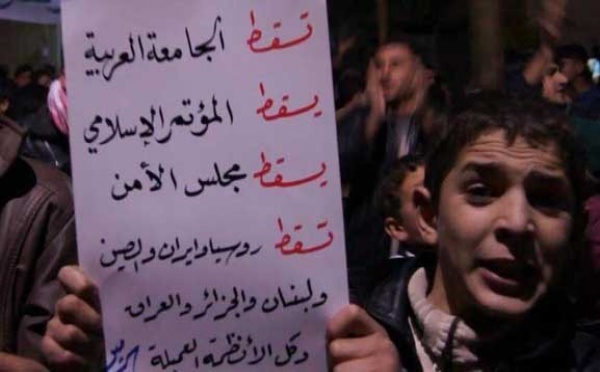 تسقط الجامعة العربية
يسقط المؤتمر الإسلامي
يسقط مجلس الأمن
تسقط روسيا وإيران والصين
ولبنان والجزائر والعراق
وكل الأنظمة العميلة